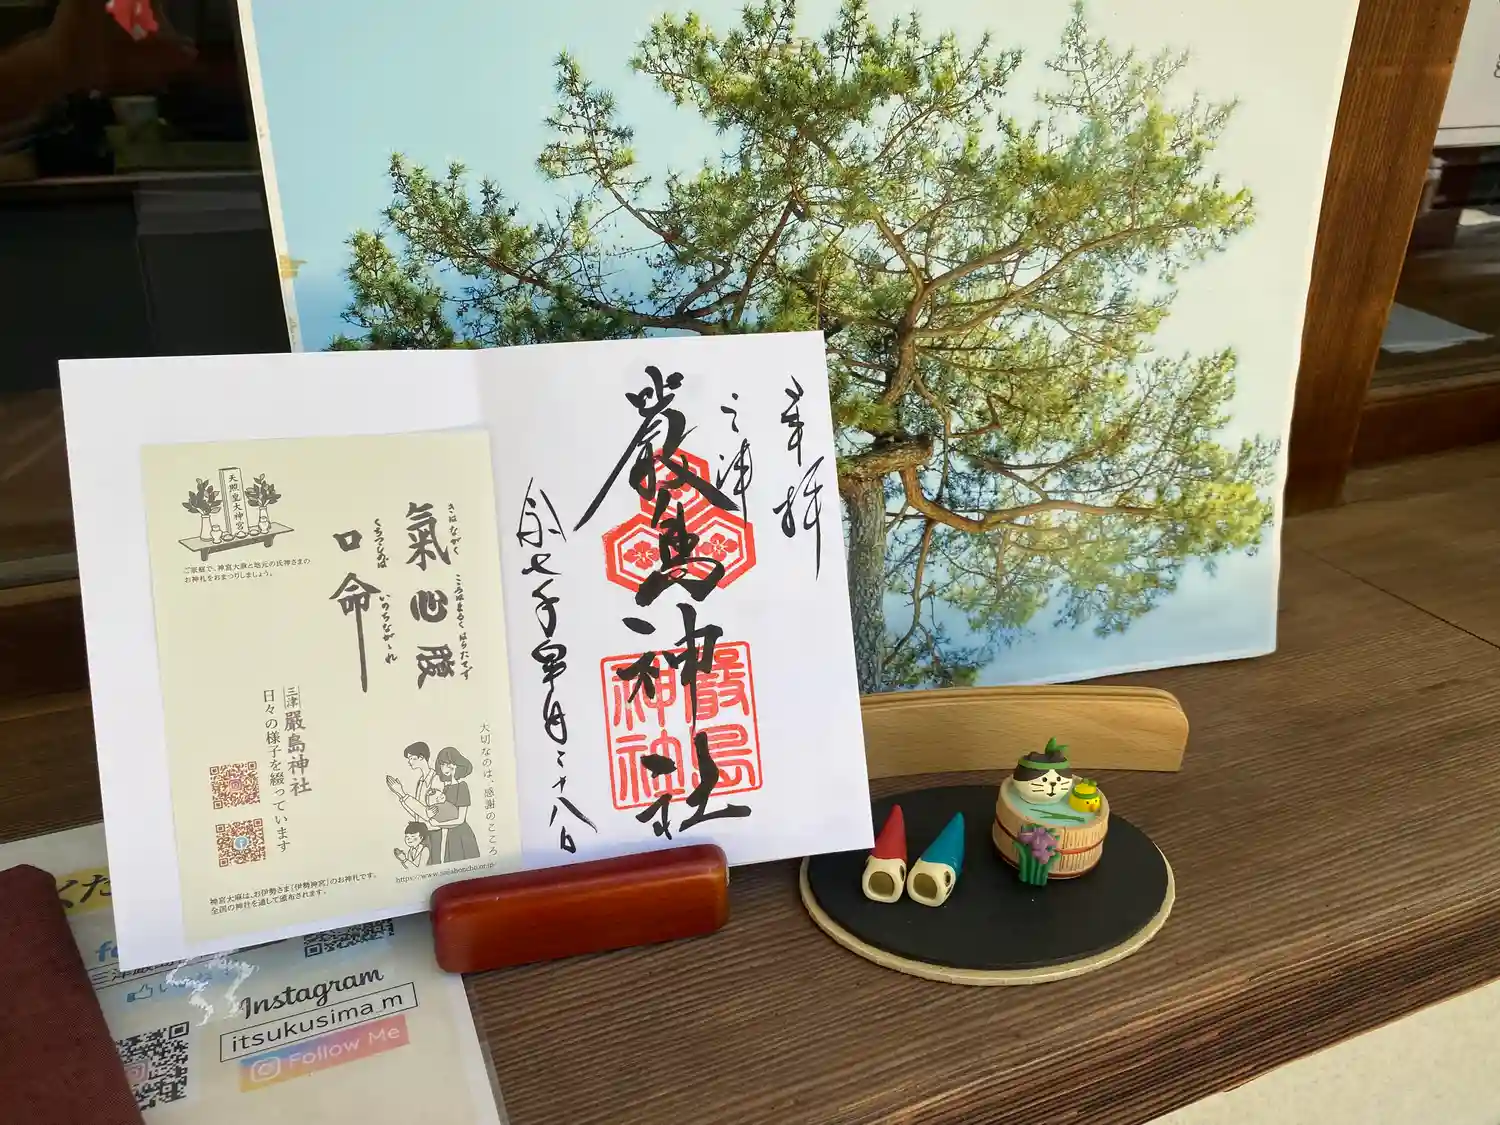 奉拝
三津
嚴島神社
令和七年皐月二十八日
嚴島
神社
天照皇大神宮
ご家庭で、神宮大麻と地元の氏神さまの
お神札をおまつりしましょう。
きはながく
こころはまるく
はらたてず
氣心腹
くちつつしめば
いのちながかれ
口命
三津
嚴島神社
日々の様子を綴っています
大切なのは、感謝のこころ
https://www.jinjahoncho.or.jp
神宮大麻は、お伊勢さま「伊勢神宮」のお神札です。
全国の神社を通して頒布されます。
Instagram
itsukusima_m
Follow Me